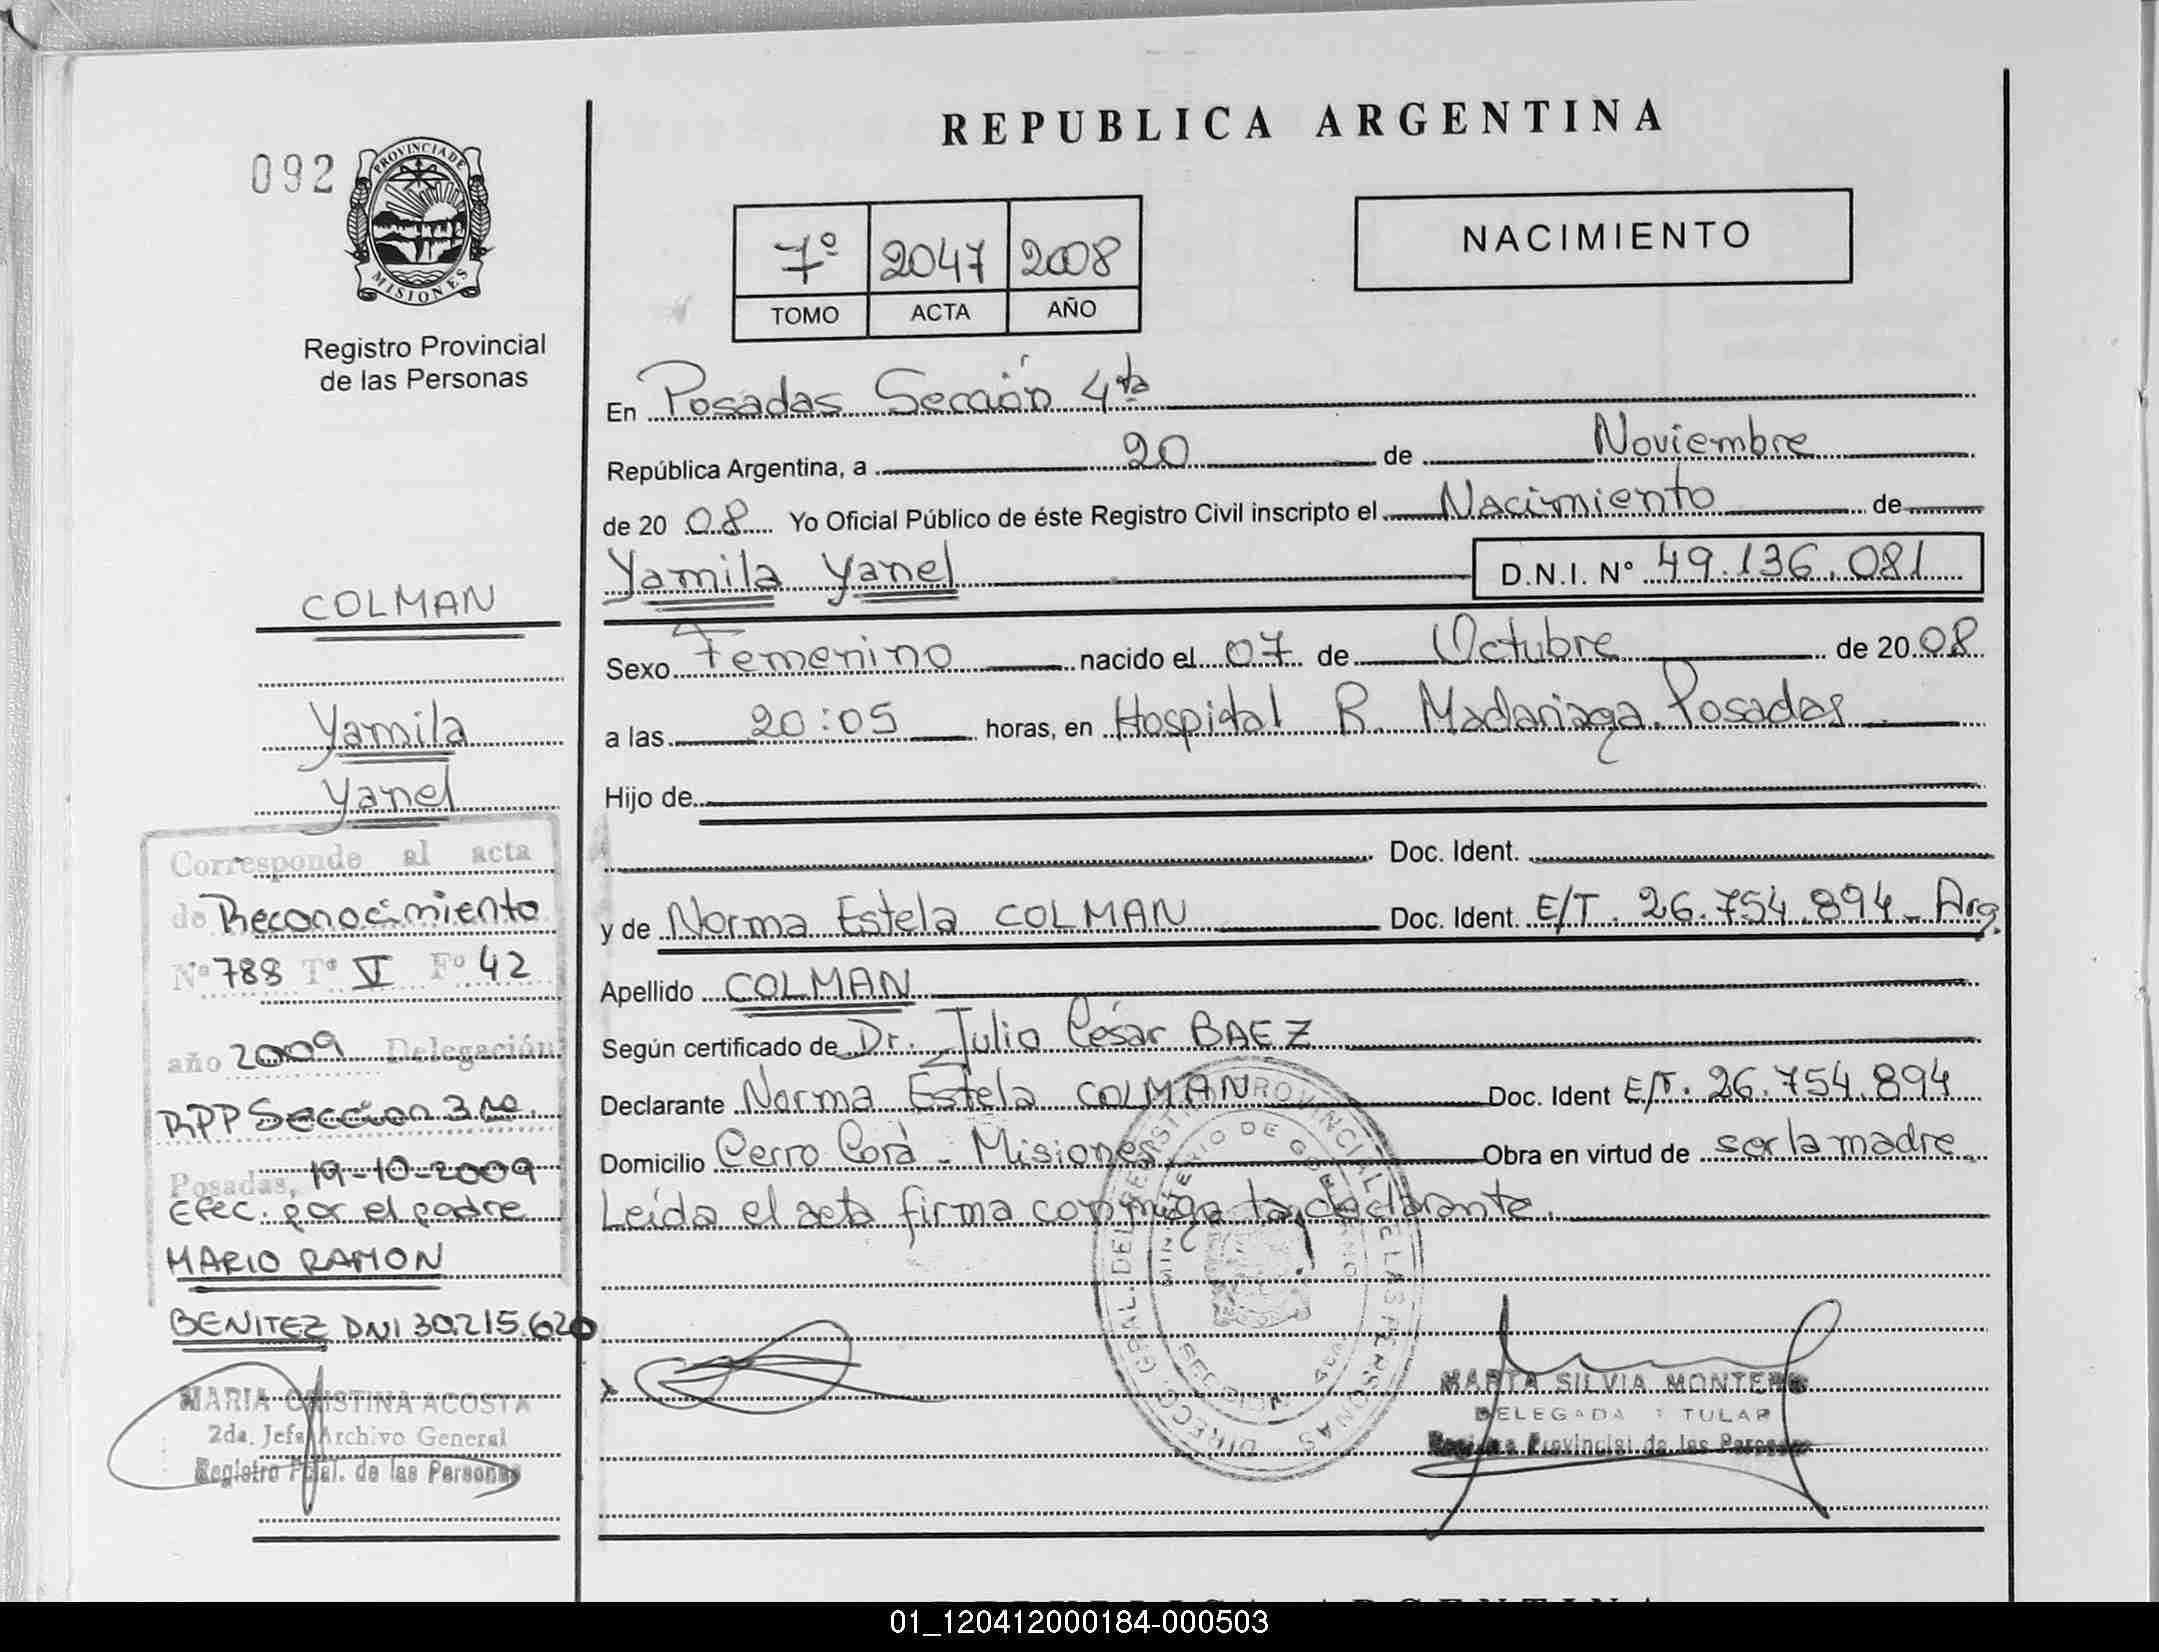 REPUBLICA ARGENTINA
092
PROVINCIA DE
MISIONES
Registro Provincial
de las Personas
7º 2047 2008
TOMO ACTA AÑO
NACIMIENTO
En Posadas Sección 4ta
República Argentina, a 20 de Noviembre
de 20 08 Yo Oficial Público de éste Registro Civil inscripto el Nacimiento de
Yamila Yanel D.N.I. Nº 49.136.081
Sexo Femenino nacido el 07 de Octubre de 20 08
a las 20:05 horas, en Hospital R. Madariaga. Posadas
Hijo de
Doc. Ident.
y de Norma Estela COLMAN Doc. Ident. E/T. 26.754.894 - Arg.
Apellido COLMAN
Según certificado de Dr. Julio César BAEZ
Declarante Norma Estela COLMAN Doc. Ident E/T. 26.754.894
Domicilio Cerro Corá - Misiones Obra en virtud de ser la madre.
Leída el acta firma conmigo la declarante.
COLMAN
Yamila
Yanel
Corresponde al acta
de Reconocimiento
Nº 788 Tº V Fº 42
año 2009 Delegación
RPP Seccion 3ra.
Posadas, 19-10-2009
Efec. por el padre
MARIO RAMON
BENITEZ DNI 30.215.620
MARIA CRISTINA ACOSTA
2da. Jefa Archivo General
Registro Pcial. de las Personas
DIRECC. GRAL. DEL REGIST. PROVINCIAL DE LAS PERSONAS
MINISTERIO DE GOBIERNO
SECCION 4ta
MARTA SILVIA MONTERO
DELEGADA TITULAR
Registro Provincial de las Personas
REPUBLICA ARGENTINA
01_120412000184-000503